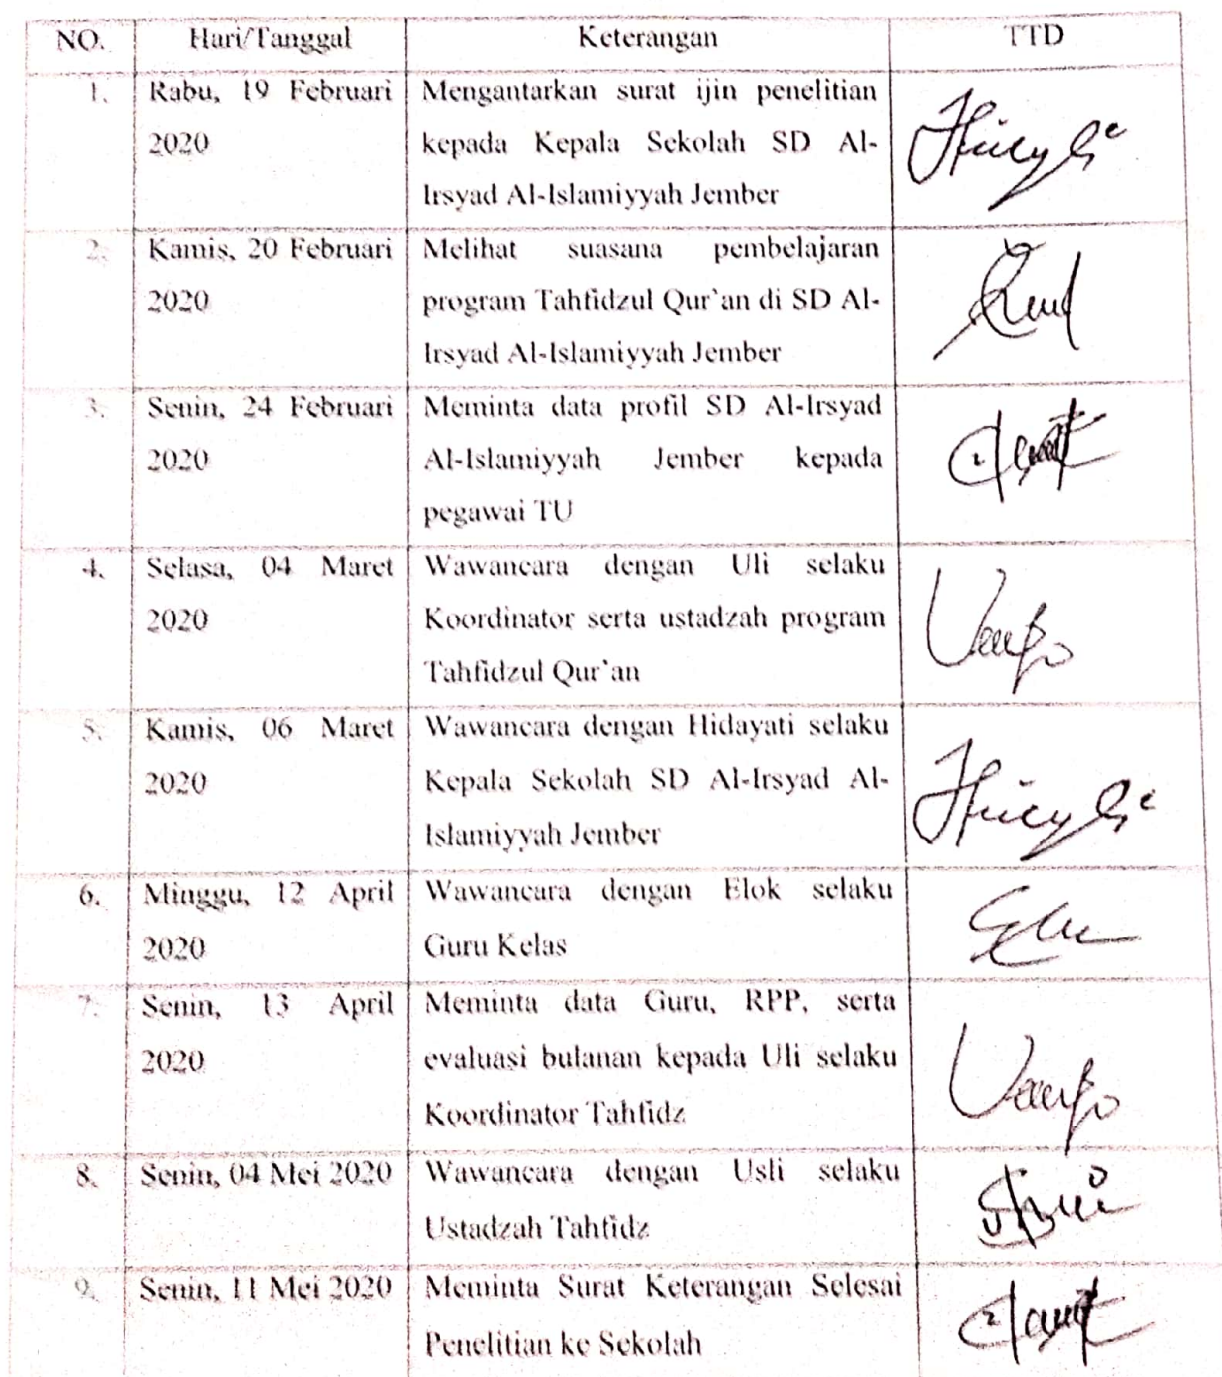 NO. Hari/Tanggal Keterangan TTD
1. Rabu, 19 Februari Mengantarkan surat ijin penelitian
2020 kepada Kepala Sekolah SD Al-
Irsyad Al-Islamiyyah Jember
2. Kamis, 20 Februari Melihat suasana pembelajaran
2020 program Tahfidzul Qur`an di SD Al-
Irsyad Al-Islamiyyah Jember
3. Senin, 24 Februari Meminta data profil SD Al-Irsyad
2020 Al-Islamiyyah Jember kepada
pegawai TU
4. Selasa, 04 Maret Wawancara dengan Uli selaku
2020 Koordinator serta ustadzah program
Tahfidzul Qur`an
5. Kamis, 06 Maret Wawancara dengan Hidayati selaku
2020 Kepala Sekolah SD Al-Irsyad Al-
Islamiyyah Jember
6. Minggu, 12 April Wawancara dengan Elok selaku
2020 Guru Kelas
7. Senin, 13 April Meminta data Guru, RPP, serta
2020 evaluasi bulanan kepada Uli selaku
Koordinator Tahfidz
8. Senin, 04 Mei 2020 Wawancara dengan Usli selaku
Ustadzah Tahfidz
9. Senin, 11 Mei 2020 Meminta Surat Keterangan Selesai
Penelitian ke Sekolah